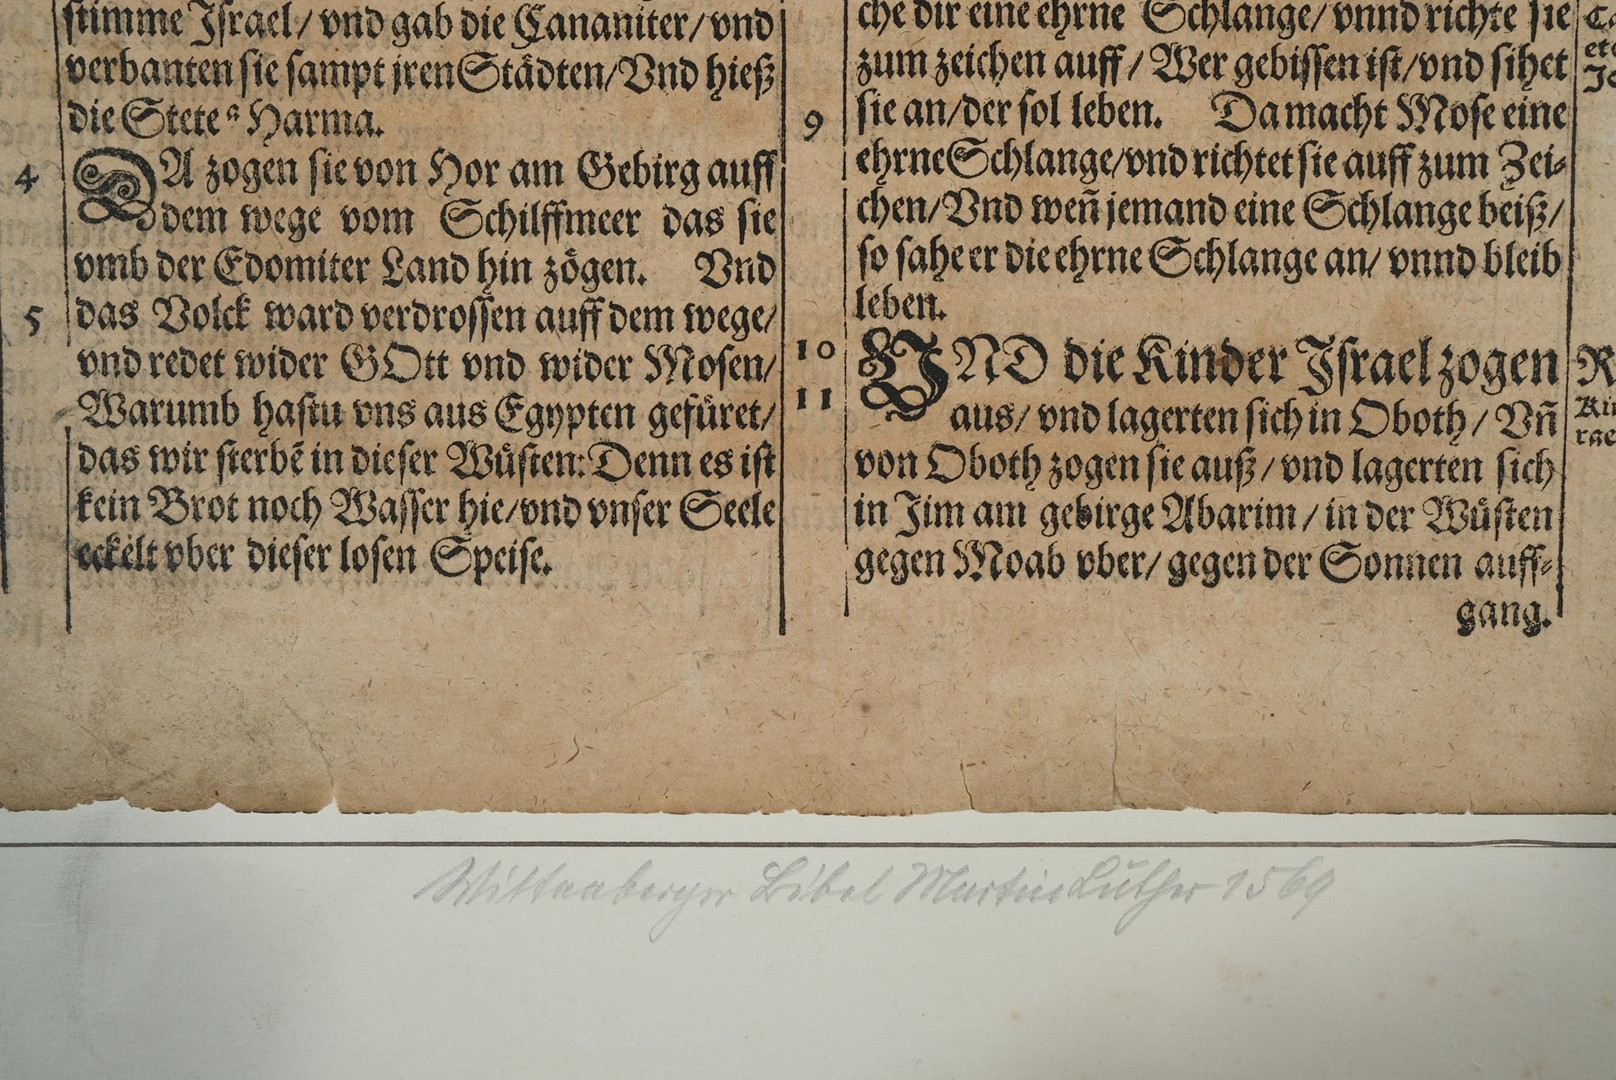 stimme Israel/ vnd gab die Cananiter/ vnd
verbanten sie sampt jren Städten/ Vnd hieß
die Stete a Harma.
4 DA zogen sie von Hor am Gebirg auff
dem wege vom Schilffmeer das sie
vmb der Edomiter Land hin zögen. Vnd
5 das Volck ward verdrossen auff dem wege/
vnd redet wider GOtt vnd wider Mosen/
Warumb hastu vns aus Egypten gefüret/
das wir sterbē in dieser Wüsten: Denn es ist
kein Brot noch Wasser hie/ vnd vnser Seele
eckelt vber dieser losen Speise.
che dir eine ehrne Schlange/ vnnd richte sie
zum zeichen auff/ Wer gebissen ist/ vnd sihet
9 sie an/ der sol leben. Da macht Mose eine
ehrne Schlange/ vnd richtet sie auff zum Zei-
chen/ Vnd weñ jemand eine Schlange beiß/
so sahe er die ehrne Schlange an/ vnnd bleib
leben.
10 VND die Kinder Israel zogen
11 aus/ vnd lagerten sich in Oboth/ Vñ
von Oboth zogen sie auß/ vnd lagerten sich
in Jim am gebirge Abarim/ in der Wüsten
gegen Moab vber/ gegen der Sonnen auff-
gang.
Wittenberger Bibel Martin Luther 1569